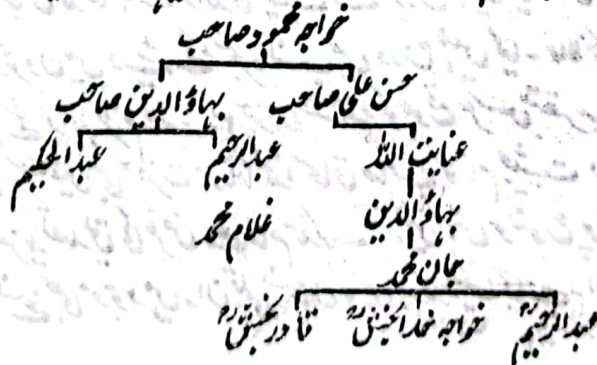 خواجہ محمود صاحب
حسن علی صاحب بہاؤالدین صاحب
عنایت اللہ عبدالرحیم عبدالحکیم
بہاؤالدین غلام محمد
جان محمد
عبدالرحیمؒ خواجہ محمد بخشؒ قادر بخشؒ